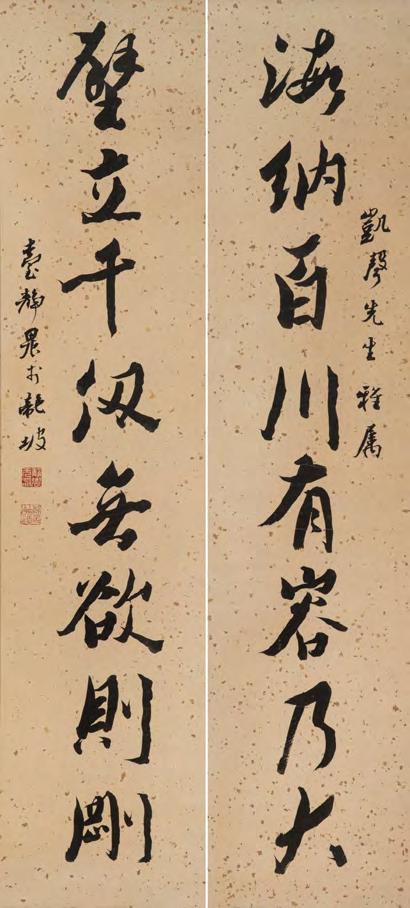 凱聲先生雅屬
海納百川有容乃大
壁立千仞無欲則剛
臺靜農於龍坡